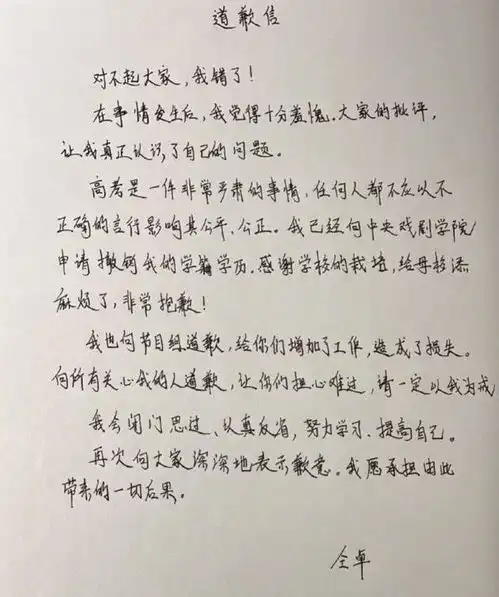 道歉信
对不起大家,我错了!
在事情发生后,我觉得十分羞愧。大家的批评,
让我真正认识了自己的问题。
高考是一件非常严肃的事情,任何人都不应以不
正确的言行影响其公平、公正。我已经向中央戏剧学院
申请撤销我的学籍学历。感谢学校的栽培,给母校添
麻烦了,非常抱歉!
我也向节目组道歉,给你们增加了工作,造成了损失。
向所有关心我的人道歉,让你们担心难过,请一定以我为戒
我会闭门思过、认真反省,努力学习、提高自己。
再次向大家深深地表示歉意。我愿承担由此
带来的一切后果。
仝卓